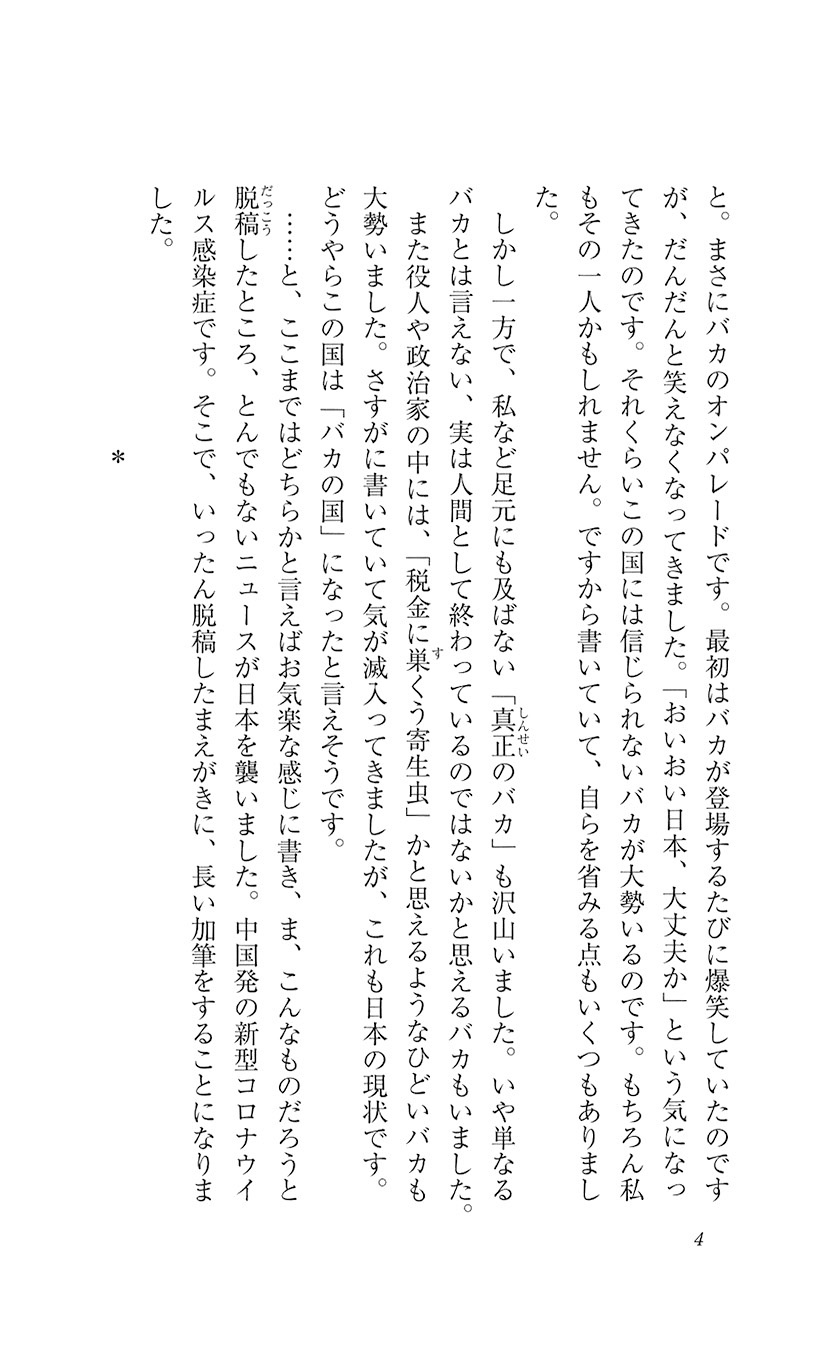 と。まさにバカのオンパレードです。最初はバカが登場するたびに爆笑していたのです
が、だんだんと笑えなくなってきました。「おいおい日本、大丈夫か」という気になっ
てきたのです。それくらいこの国には信じられないバカが大勢いるのです。もちろん私
もその一人かもしれません。ですから書いていて、自らを省みる点もいくつもありまし
た。
しかし一方で、私など足元にも及ばない「真正のバカ」も沢山いました。いや単なる
しんせい
バカとは言えない、実は人間として終わっているのではないかと思えるバカもいました。
また役人や政治家の中には、「税金に巣くう寄生虫」かと思えるようなひどいバカも
す
大勢いました。さすがに書いていて気が滅入ってきましたが、これも日本の現状です。
どうやらこの国は「バカの国」になったと言えそうです。
……と、ここまではどちらかと言えばお気楽な感じに書き、ま、こんなものだろうと
脱稿したところ、とんでもないニュースが日本を襲いました。中国発の新型コロナウイ
だっこう
ルス感染症です。そこで、いったん脱稿したまえがきに、長い加筆をすることになりま
した。
*
4